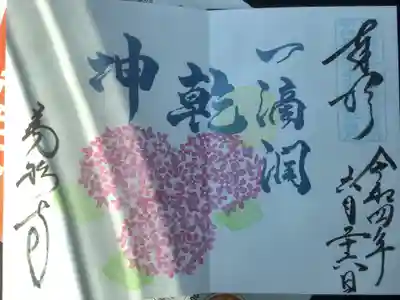 奉拝
一滴潤
乾
坤
令和四年
六月二十六日